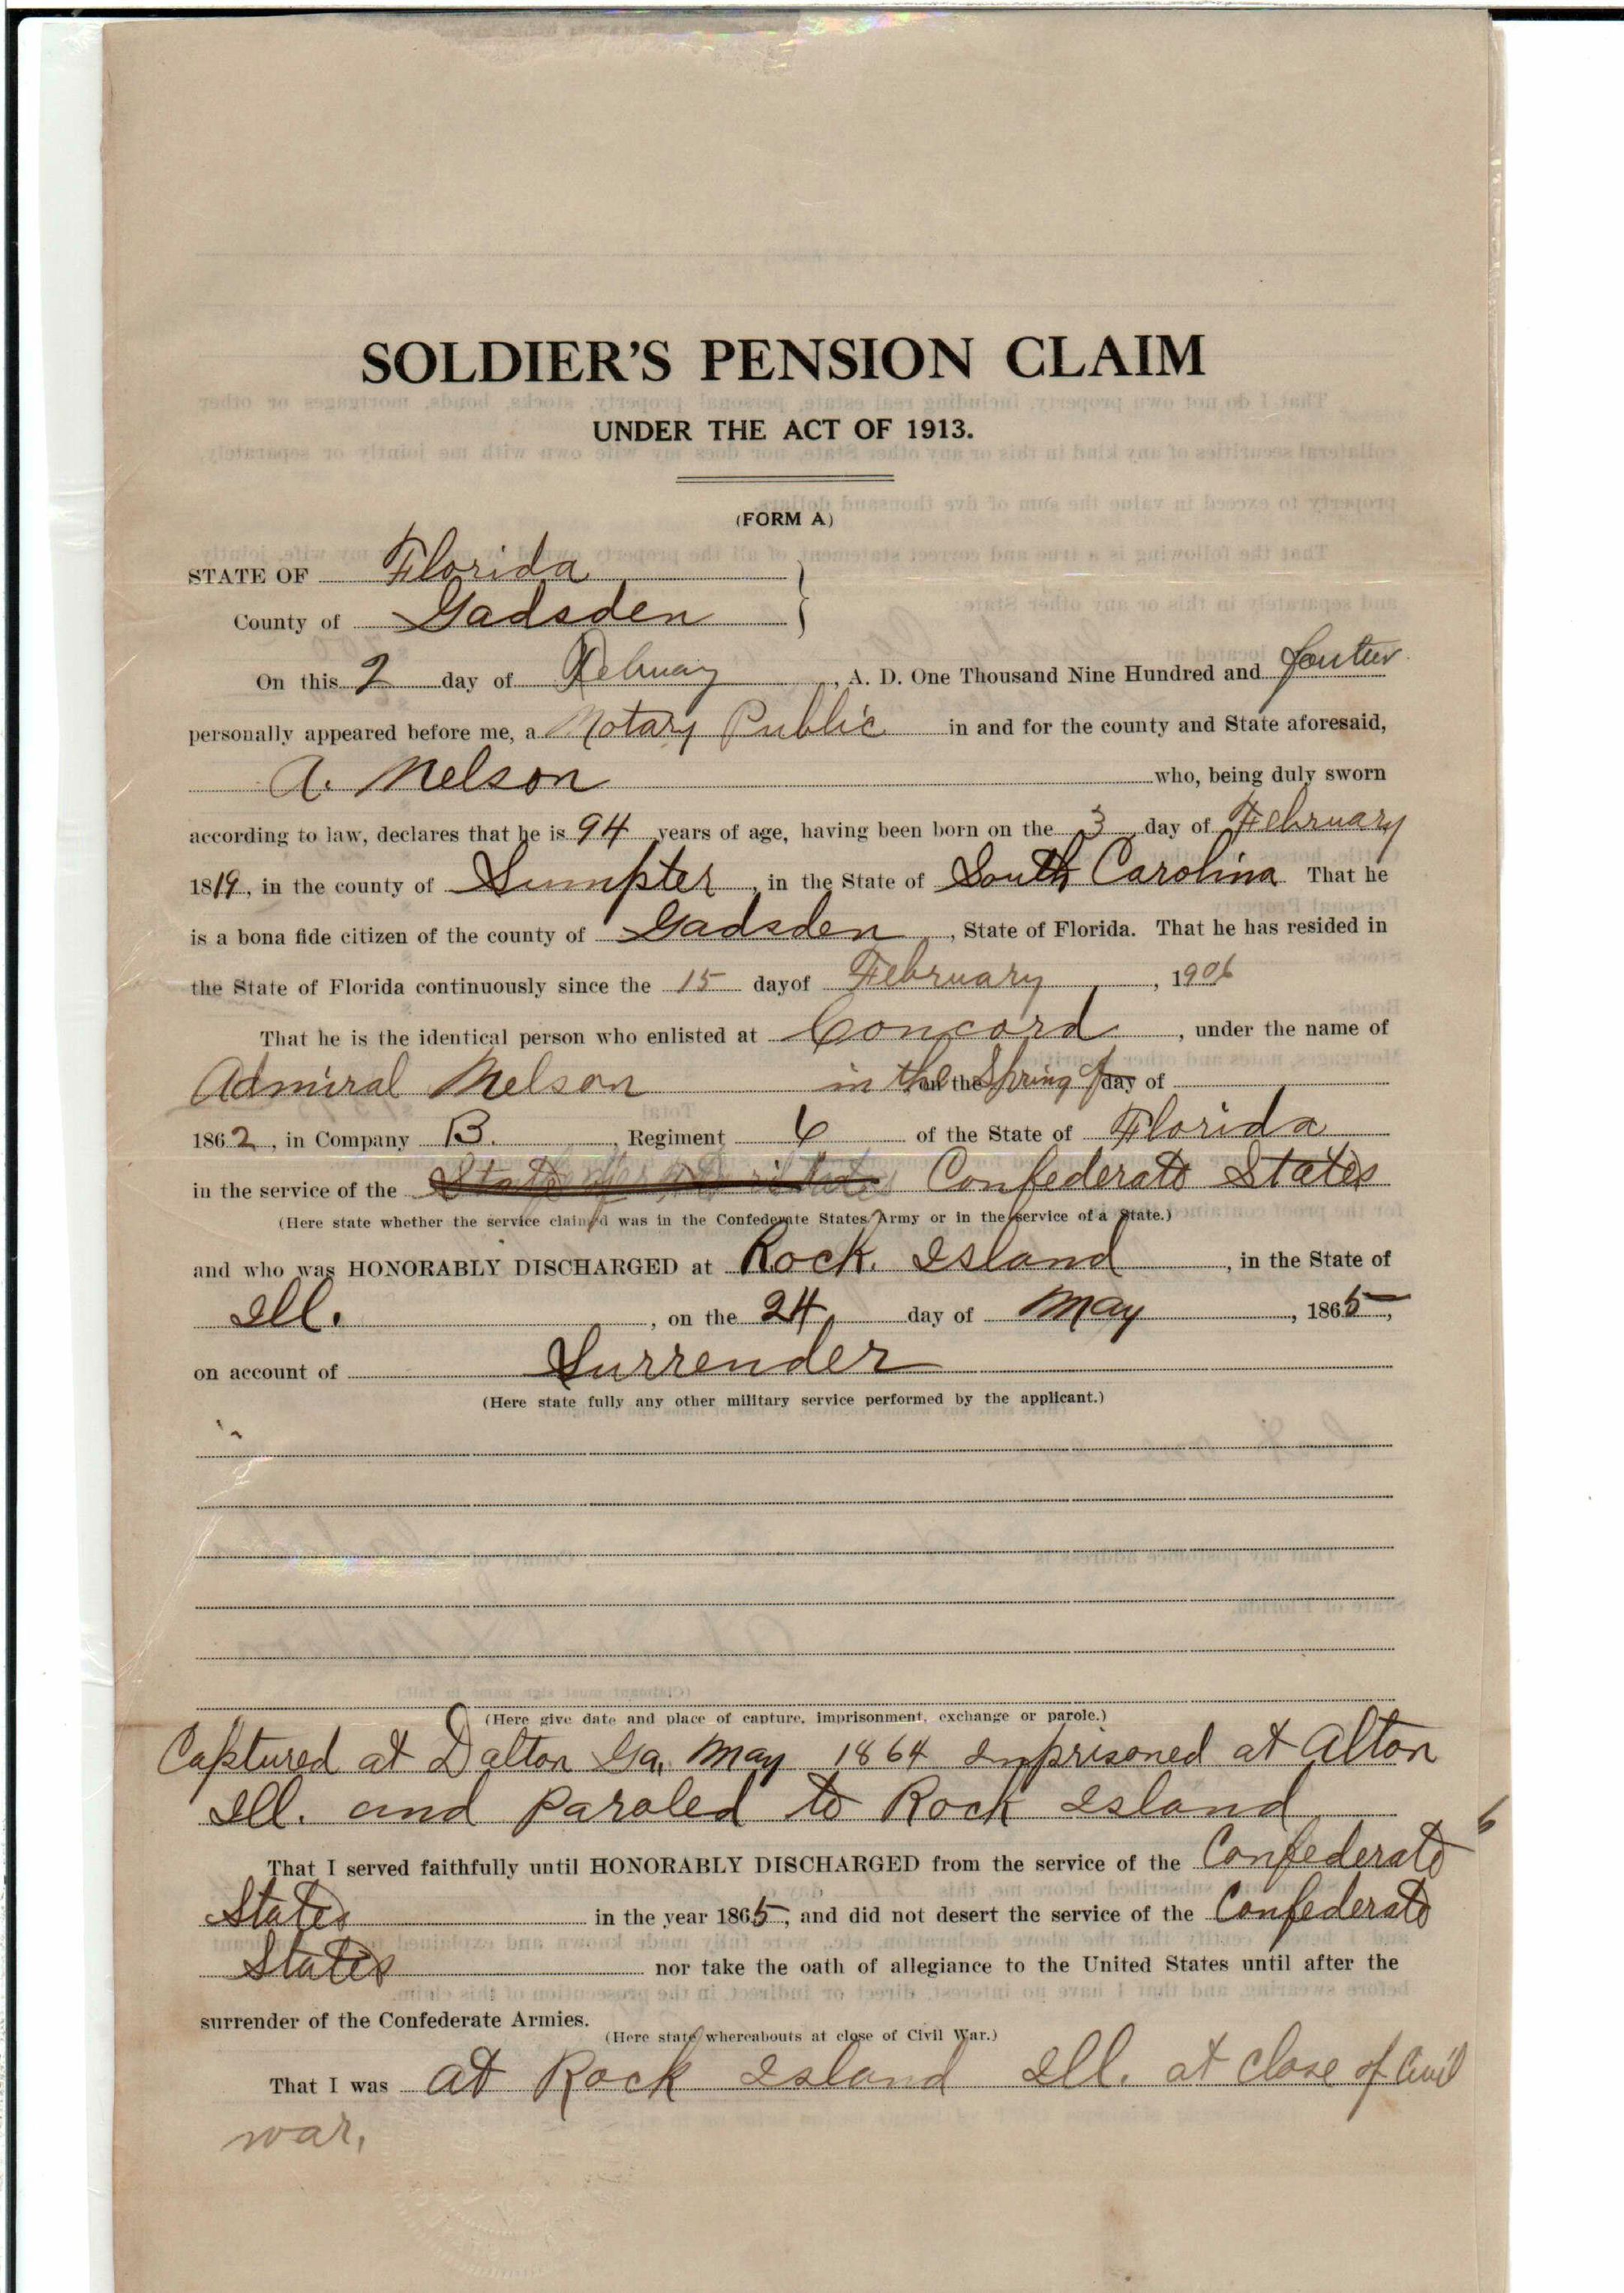 SOLDIER'S PENSION CLAIM
UNDER THE ACT OF 1913.
(FORM A)
STATE OF Florida
County of Gadsden
On this 2 day of Februay, A. D. One Thousand Nine Hundred and
personally appeared before me, a Notary Public in and for the county and State aforesaid,
A. Nelson who, being duly sworn
according to law, declares that he is 94 years of age, having been born on the 3 day of February
1819, in the county of Sumpter, in the State of South Carolina That he
is a bona fide citizen of the county of Gadsden, State of Florida. That he has resided in
the State of Florida continuously since the 15 dayof February, 1906
That he is the identical person who enlisted at Concord, under the name of
Admiral Nelson in the Spring of on the day of
1862, in Company B., Regiment 6 of the State of Florida
in the service of the Confederate States
(Here state whether the service claimed was in the Confederate States Army or in the service of a State.)
and who was HONORABLY DISCHARGED at Rock. Island, in the State of
Ill., on the 24 day of May, 1865,
on account of Surrender
(Here state fully any other military service performed by the applicant.)
(Here give date and place of capture, imprisonment, exchange or parole.)
Captured at Dalton Ga, May 1864 Imprisoned at Alton
Ill. and Paroled to Rock Island
That I served faithfully until HONORABLY DISCHARGED from the service of the Confederate
States in the year 1865, and did not desert the service of the Confederate
States nor take the oath of allegiance to the United States until after the
surrender of the Confederate Armies.
(Here state whereabouts at close of Civil War.)
That I was at Rock Island Ill. at close of Civil
war.